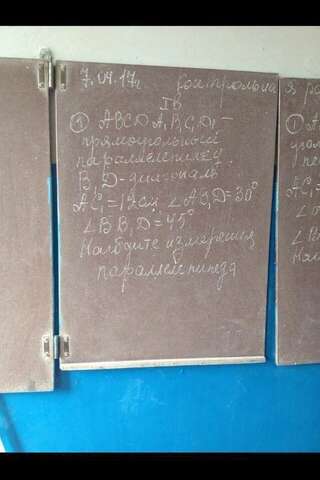 7.04.17. Контрольна я ра
I в
① ABCDA₁B₁C₁D₁ –
прямоугольный
параллелепипед.
B₁D – диагональ
AC₁ = 12см ∠AC₁D = 30°
∠BB₁D = 45°
Найдите измерения
параллелепипеда
①
угол
AC₁ =
∠
Най